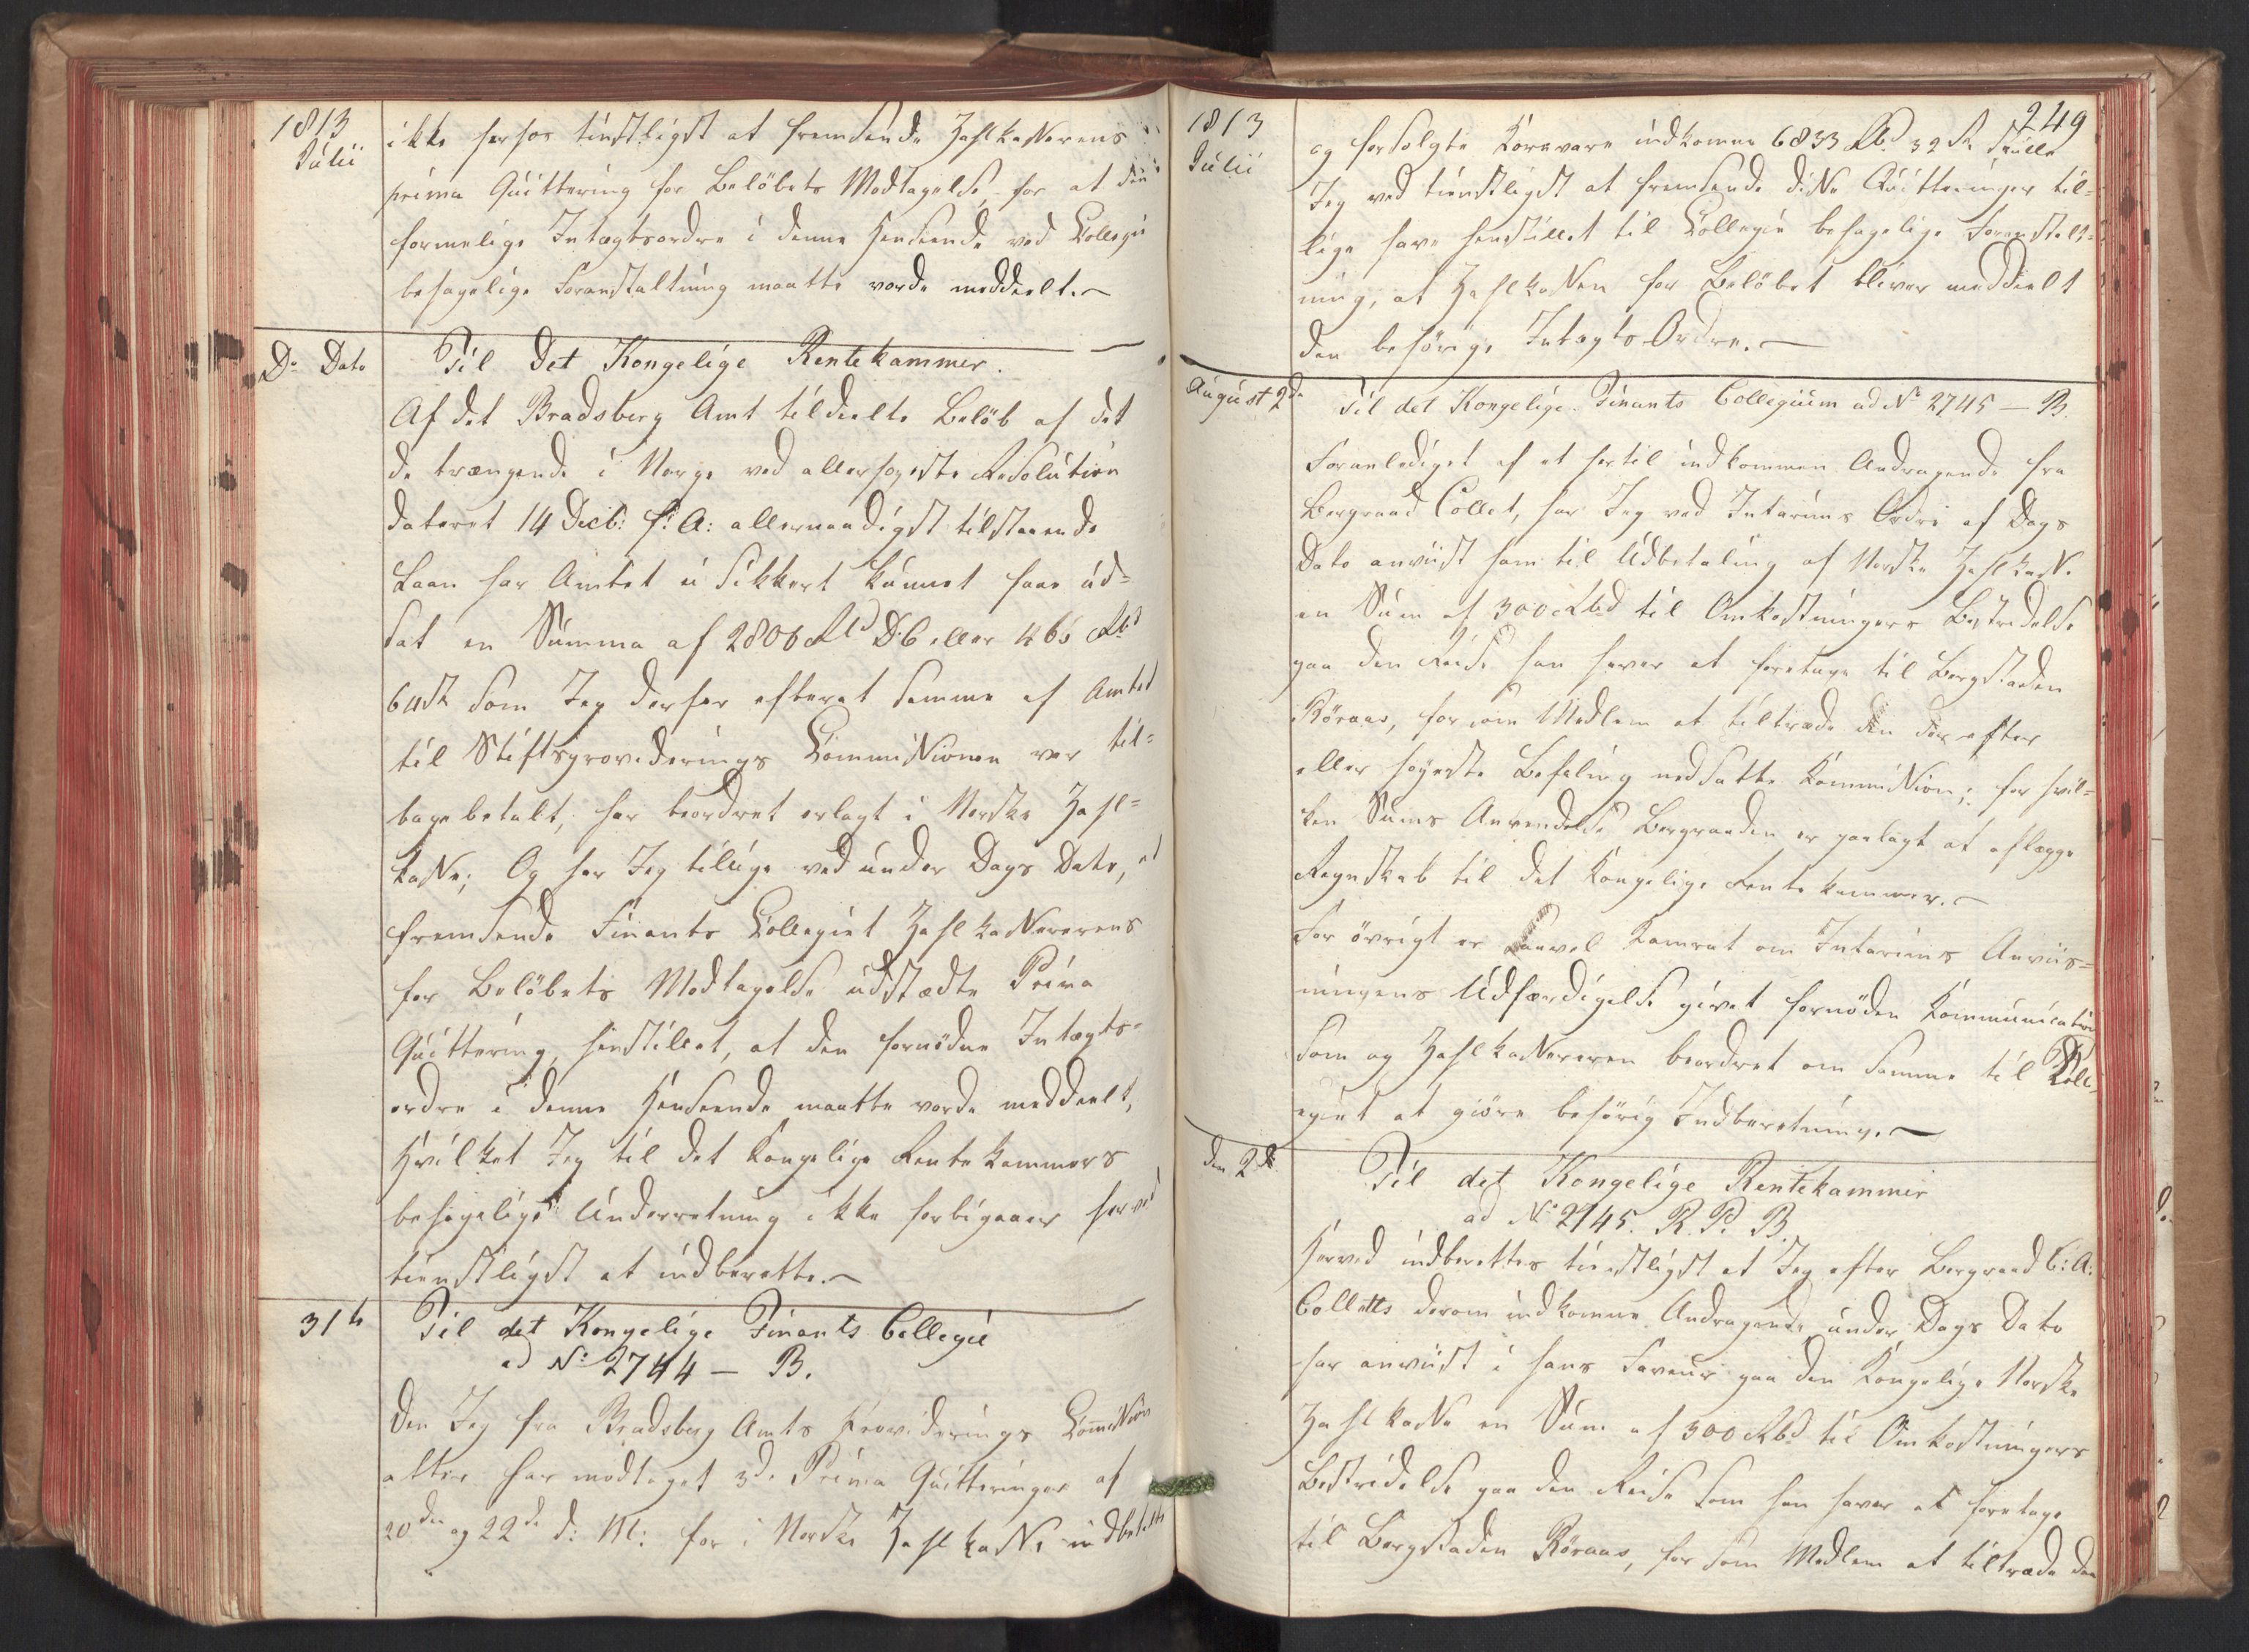 1813
Julii
ikke herhos tienstligst at fremsende Zahlkasserens
prima Quittering for Beløbets Modtagelse, for at den
formelige Indtægtsordre i denne Henseende ved Collegii
behagelige Foranstaltning maatte vorde meddeelt.
Do Dato
Til det Kongelige Rentekammer.
Af det Bradsberg Amt tildeelte Beløb af det
de trængende i Norge ved allerhøieste Resolution
dateret 14 Decb: f: A: allernaadigst tilstaaende
Laan har Amtet ei sikkert kunnet faae ud-
sat en Summa af 2806 Rd D:C eller 466 Rbd
64 sk som Jeg derfor efterat samme af Amtet
til Stiftsprovideerings Commissionen var til-
bagebetalt, har beordret erlagt i Norske Zahl-
kasse; Og har Jeg tillige ved under Dags Dato, at
fremsende Finants Collegiet Zahlkassererens
for Beløbets Modtagelse udstædte Prima
Quittering, henstillet, at den fornødne Indtægts-
ordre i denne Henseende maatte vorde meddeelt,
Hvilket Jeg til det Kongelige Rentekammers
behagelige Underretning ikke forbigaaer herved
tienstligst at indberette.
31te
Til det Kongelige Finants Collegie
ad No: 2744 - B.
Den Jeg fra Bradsberg Amts Provideerings Commission
atter har modtaget 3de Prima Quitteringer af
20de og 22de d: M: for i Norske Zahlkasse indbetalte
249
1813
Julii
og forsolgte Kornvare indkomne 6833 Rbd 32 sk skulle
Jeg ved tienstligst at fremsende disse Quitteringer til-
lige have henstillet til Collegiets behagelige Foranstalt-
ning, at Zahlkassen for Beløbet bliver meddeelt
den behørige Indtægts Ordre.
August 2de
Til det Kongelige Finants Collegium ad No 2745 - B.
Foranlediget af et hertil indkommen Andragende fra
Bergraad Collet, har Jeg ved Interims Ordre af Dags
Dato anviist ham til Udbetaling af Norske Zahlkasse
en Sum af 300 Rbd til Omkostningers Bestridelse
paa den Reise han haver at foretage til Bergstaden
Röraas, for som Medlem at tiltræde den der efter
allerhøyeste Befaling nedsatte Kommission; for hvil-
ken Sums Anvendelse Bergraaden er paalagt at aflægge
Regnskab til det Kongelige Rentekammer.
For øvrigt er saavel Kamret om Interims Anviis-
ningens Udfærdigelse givet fornøden Kommunication
som og Zahlkassereren beordret om samme til Kolle-
giet at giøre behørig Indberetning.
den 2de
Til det Kongelige Rentekammer
ad No 2745. R. P. B.
Herved indberettes tienstligst at Jeg efter Bergraad C: A:
Colletts derom indkomne Andragende under Dags Dato
har anviist i hans Faveur paa den Kongelige Norske
Zahlkasse en Sum af 300 Rbd til Omkostningers
Bestridelse paa den Reise som han haver at foretage
til Bergstaden Röraas, for som Medlem at tiltræde den